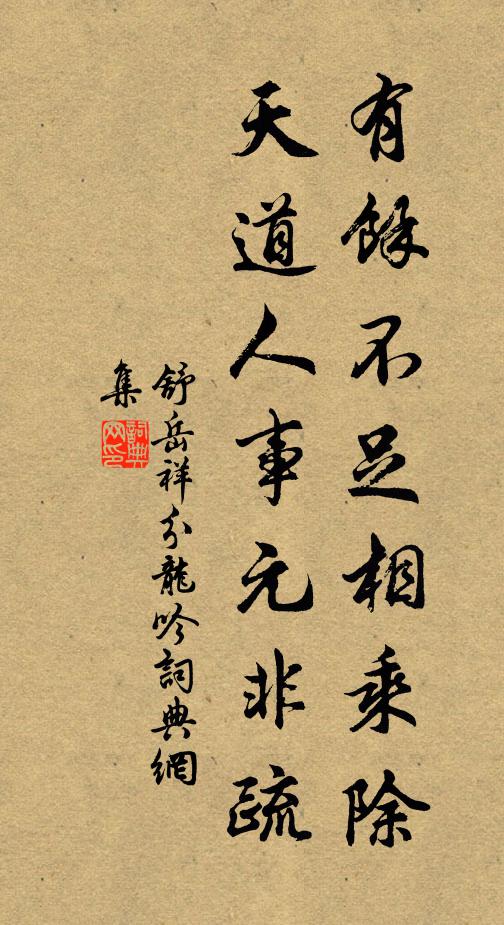 有餘不足相乘除
天道人事元非疏
舒岳祥分龍吟詞典網
集
詞典網印